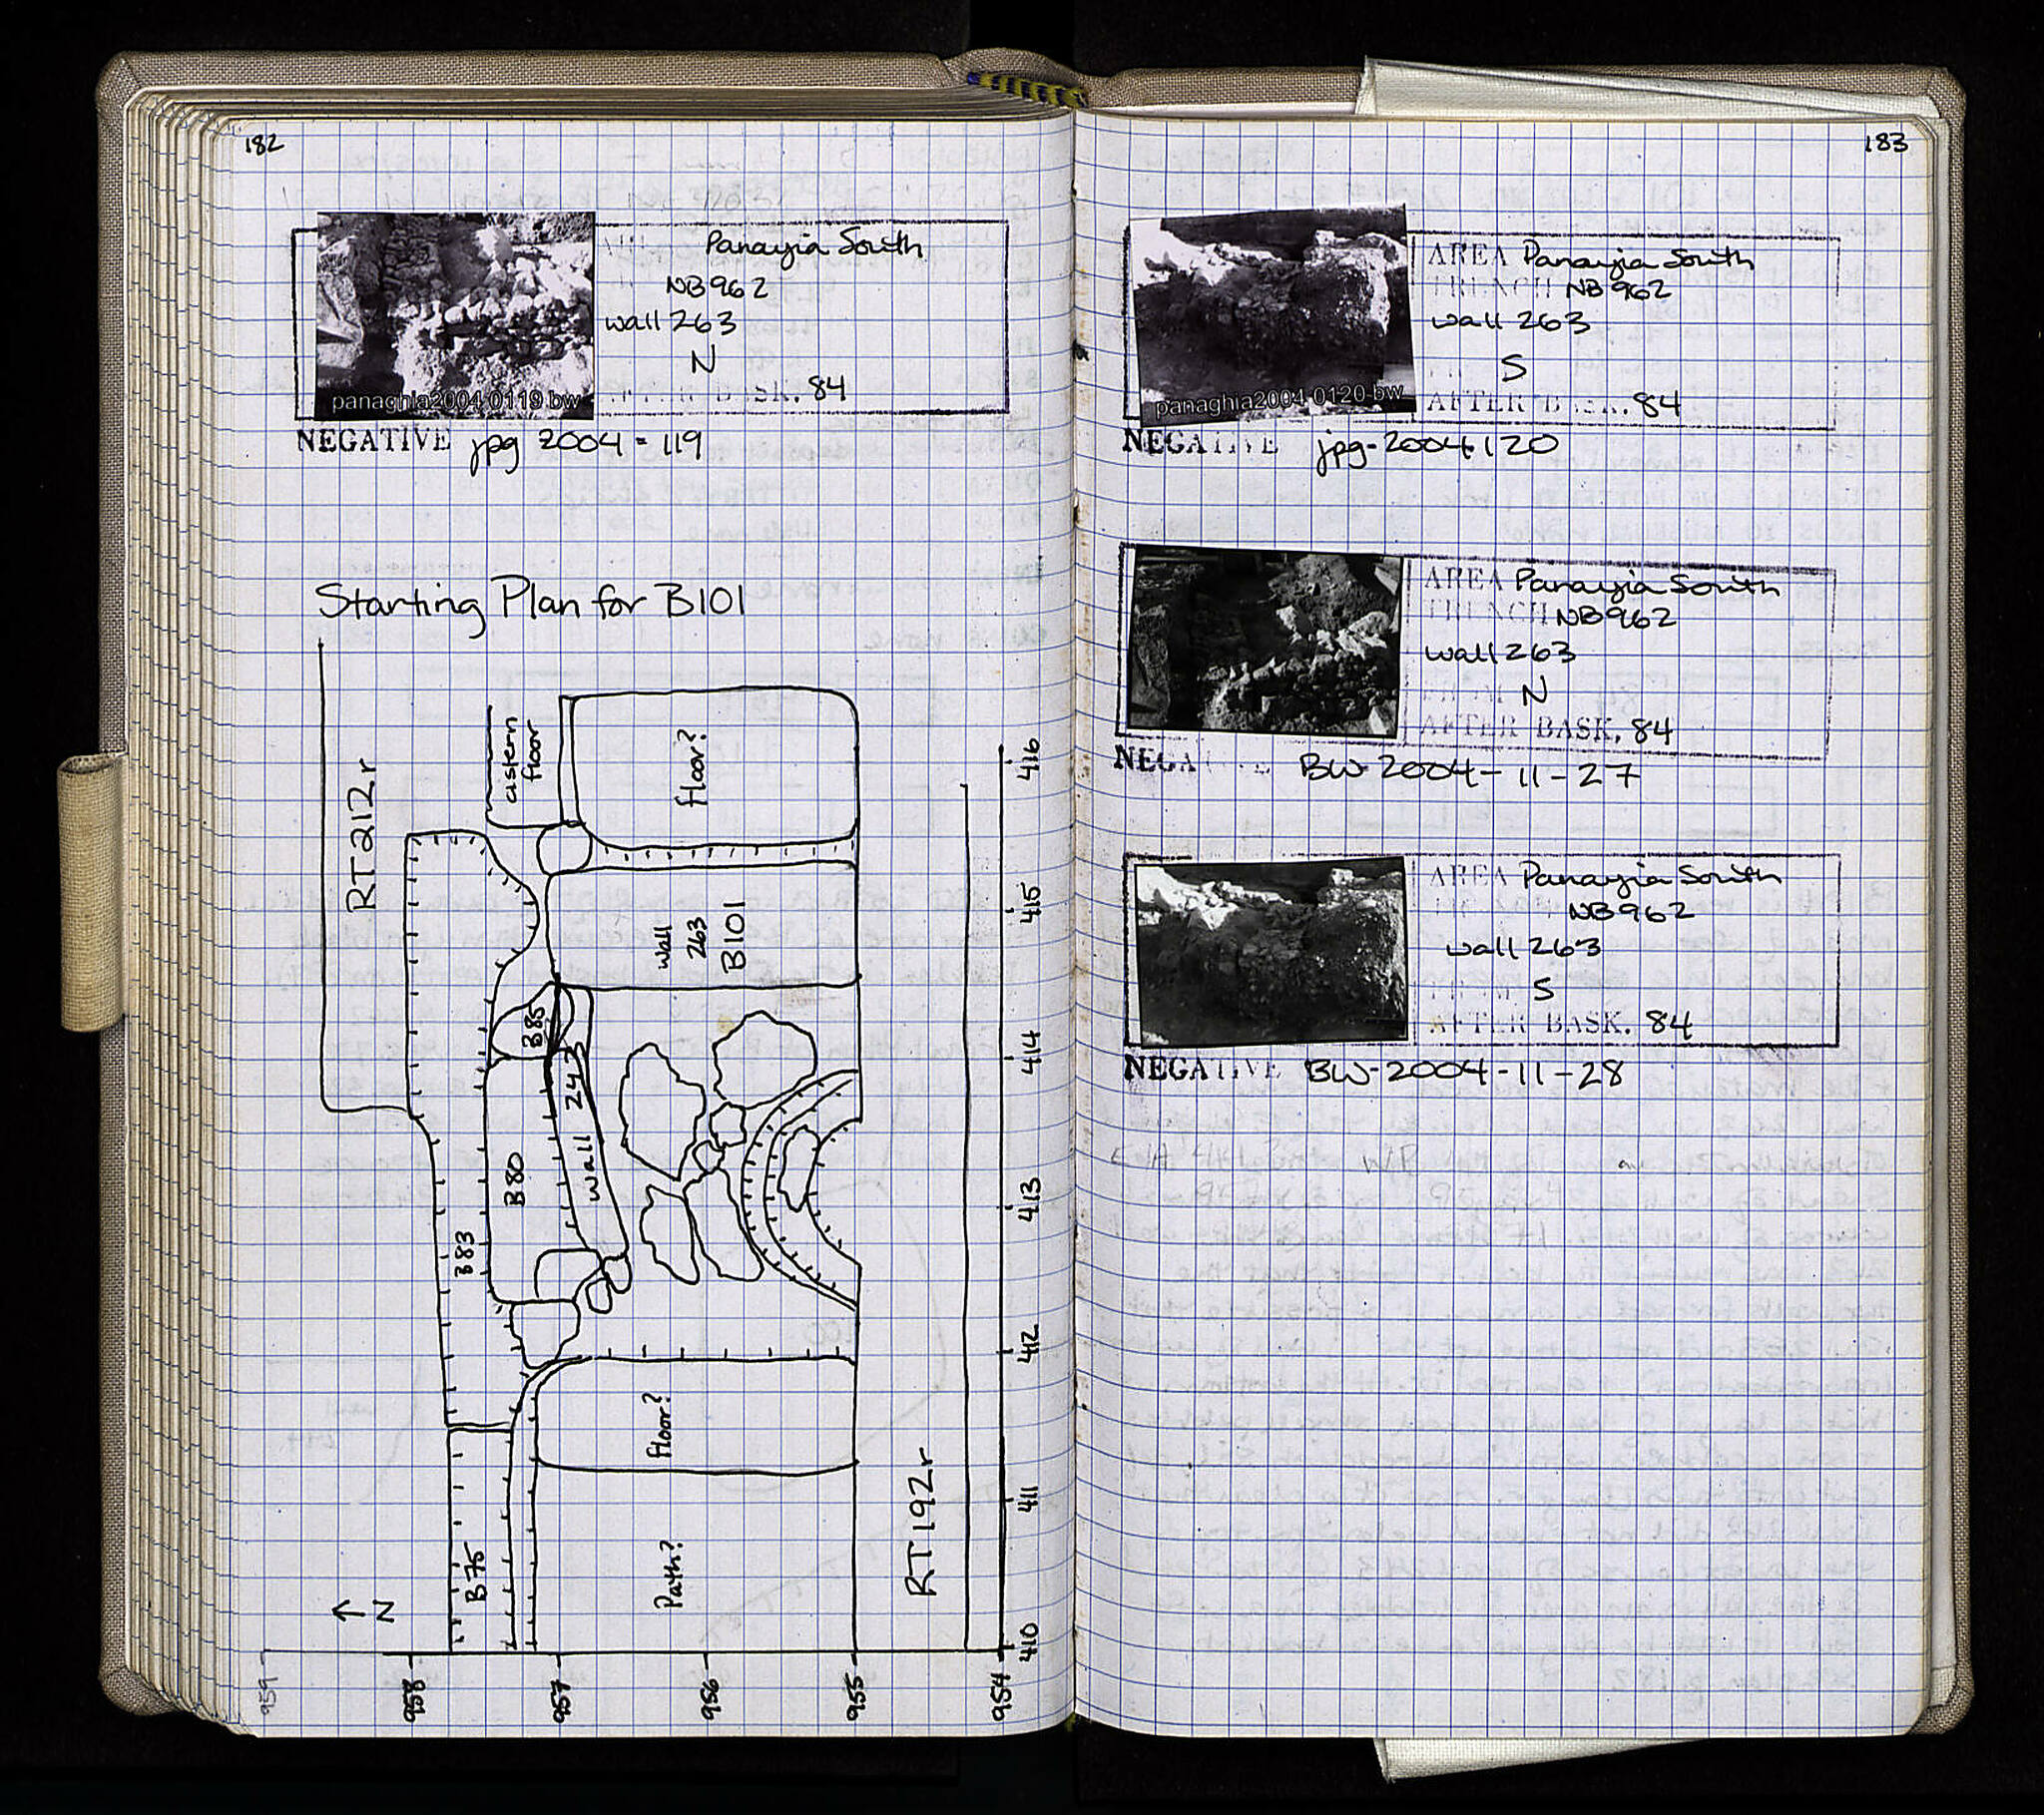 182
Panayia South
NB962
wall 263
N
84
panaghia2004 0119 bw
NEGATIVE jpg 2004-119
Starting Plan for B101
RT212r
cistern
floor
floor?
wall
263
B101
B85
wall 243
B80
B83
B75
floor?
Path?
RT192r
N
416
415
414
413
412
411
410
959
958
957
956
955
954
183
AREA Panayia South
TRENCH NB962
wall 263
S
AFTER BASK. 84
panaghia2004 0120 bw
NEGATIVE jpg-2004120
AREA Panayia South
TRENCH NB962
wall 263
FROM N
AFTER BASK. 84
BW-2004-11-27
AREA Panayia South
NB962
wall 263
FROM S
AFTER BASK. 84
NEGATIVE BW-2004-11-28